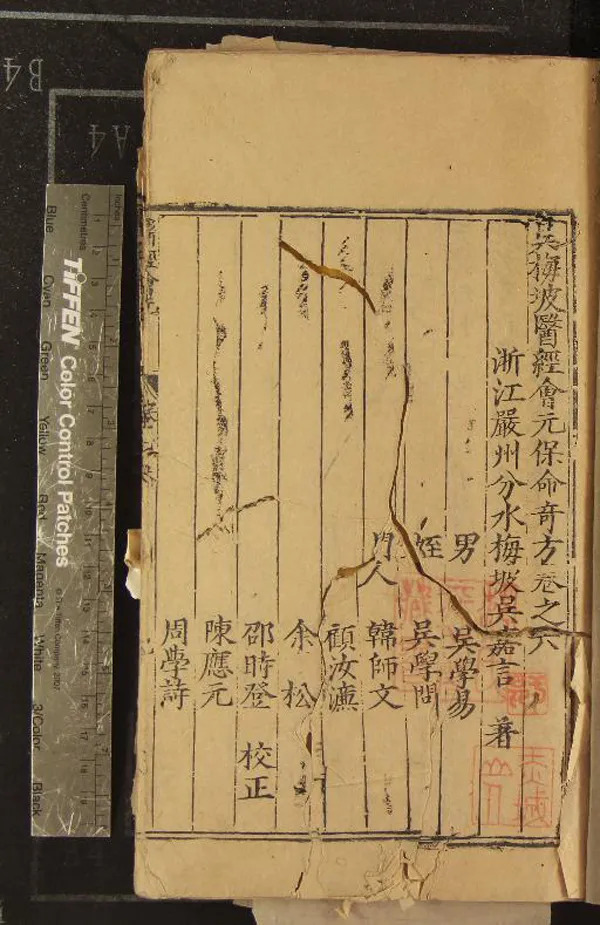 吳梅坡醫經會元保命奇方卷之六
浙江嚴州分水梅坡吳嘉言 著
男 吳學易
姪 吳學問
門人 韓師文
顧汝濂
余松
邵時登 校正
陳應元
周學詩
B4
A4
Inches
Centimetres
TIFFEN Color Control Patches
© The Tiffen Company, 2007
Blue
Cyan
Green
Yellow
Red
Magenta
White
3/Color
Black